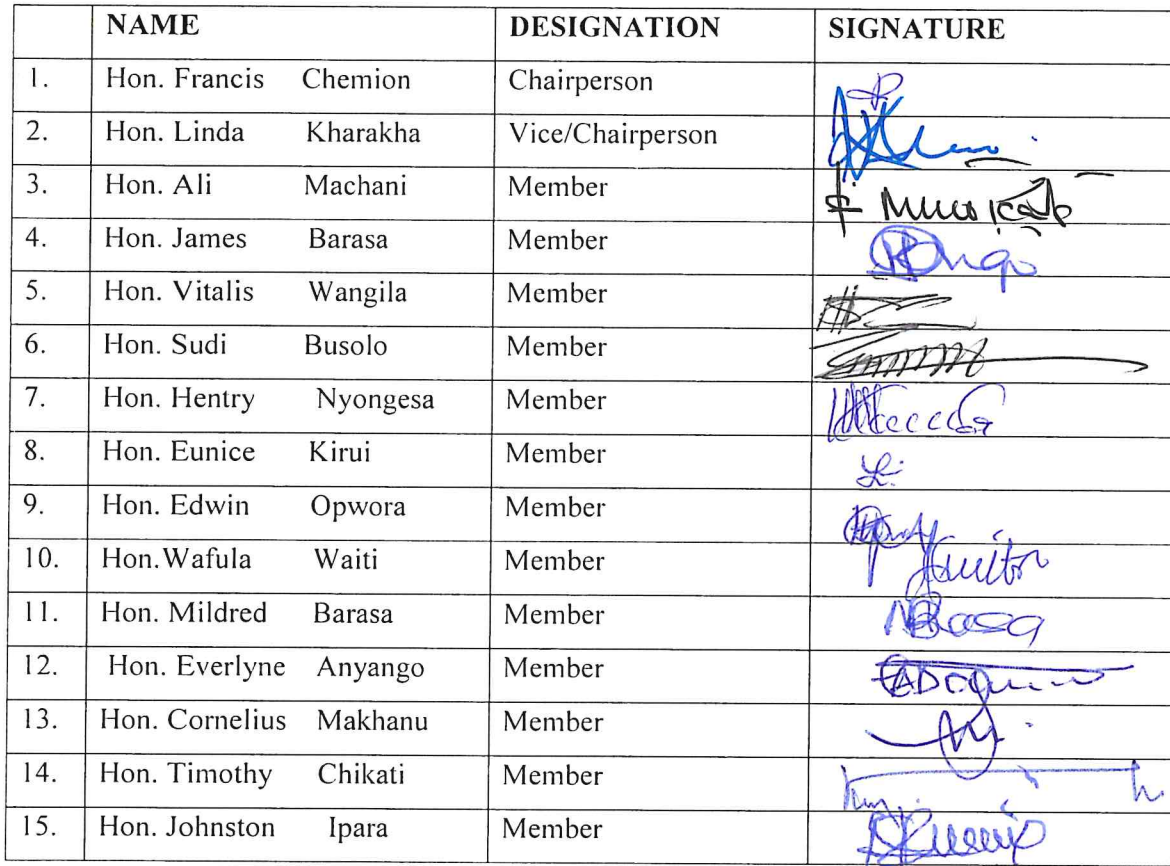 NAME DESIGNATION SIGNATURE
1. Hon. Francis Chemion Chairperson
2. Hon. Linda Kharakha Vice/Chairperson
3. Hon. Ali Machani Member
4. Hon. James Barasa Member
5. Hon. Vitalis Wangila Member
6. Hon. Sudi Busolo Member
7. Hon. Hentry Nyongesa Member
8. Hon. Eunice Kirui Member
9. Hon. Edwin Opwora Member
10. Hon.Wafula Waiti Member
11. Hon. Mildred Barasa Member
12. Hon. Everlyne Anyango Member
13. Hon. Cornelius Makhanu Member
14. Hon. Timothy Chikati Member
15. Hon. Johnston Ipara Member